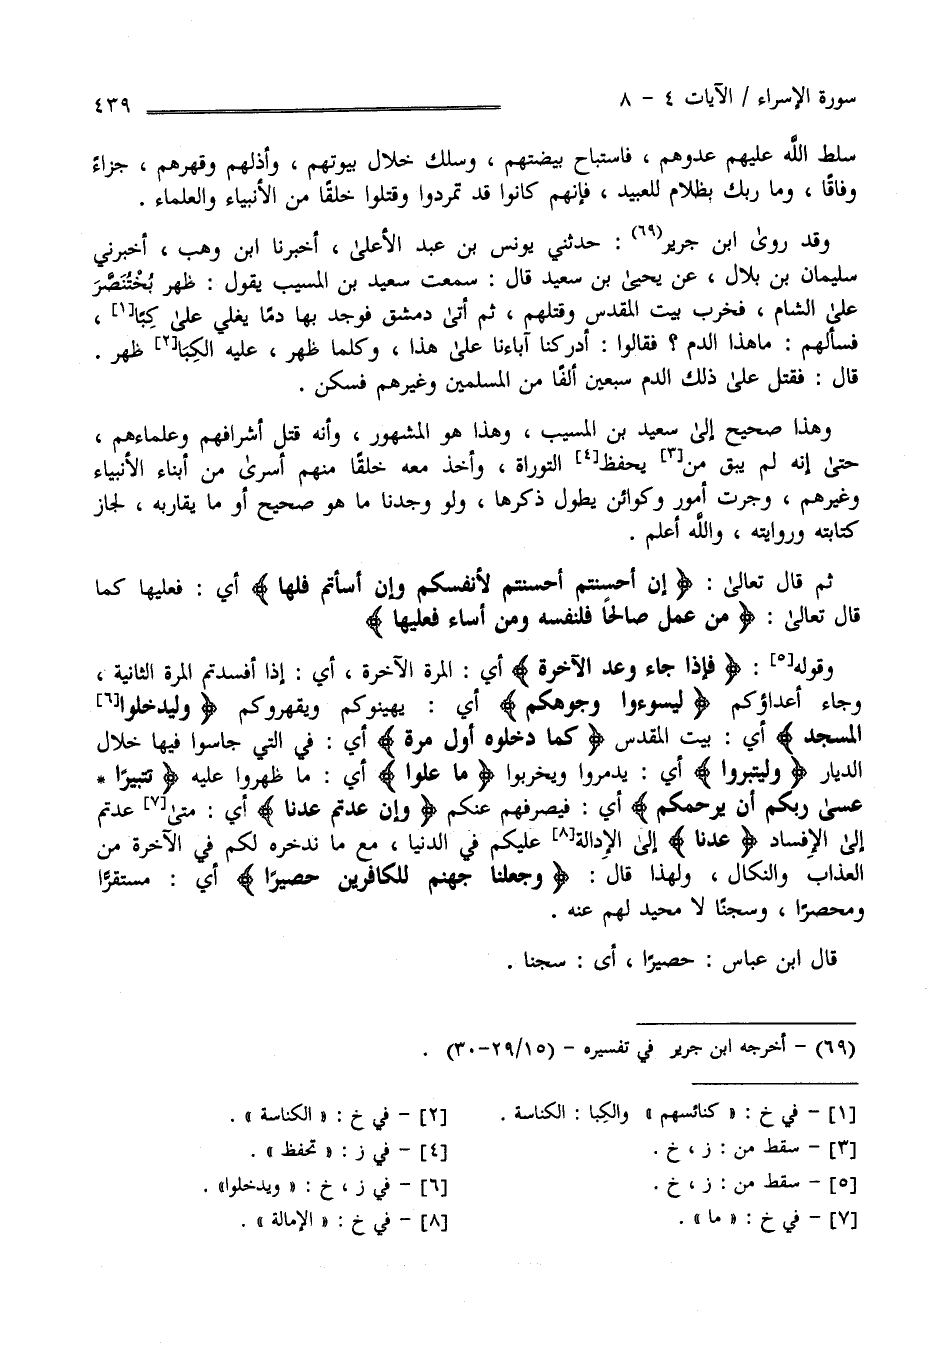 سورة الإسراء / الآيات ٤ - ٨
٤٣٩
سلط اللَّه عليهم عدوهم ، فاستباح بيضتهم ، وسلك خلال بيوتهم ، وأذلهم وقهرهم ، جزاءً
وفاقًا ، وما ربك بظلام للعبيد ، فإنهم كانوا قد تمردوا وقتلوا خلقًا من الأنبياء والعلماء .
وقد روىٰ ابن جرير(٦٩) : حدثني يونس بن عبد الأعلىٰ ، أخبرنا ابن وهب ، أخبرني
سليمان بن بلال ، عن يحيىٰ بن سعيد قال : سمعت سعيد بن المسيب يقول : ظهر بُخْتُنَصَّرَ
علىٰ الشام ، فخرب بيت المقدس وقتلهم ، ثم أتىٰ دمشق فوجد بها دمًا يغلي علىٰ كِبًا[١] ،
فسألهم : ماهذا الدم ؟ فقالوا : أدركنا آباءنا علىٰ هذا ، وكلما ظهر ، عليه الكِبَا[٢] ظهر .
قال : فقتل علىٰ ذلك الدم سبعين ألفًا من المسلمين وغيرهم فسكن .
وهذا صحيح إلىٰ سعيد بن المسيب ، وهذا هو المشهور ، وأنه قتل أشرافهم وعلماءهم ،
حتىٰ إنه لم يبق من[٣] يحفظ[٤] التوراة ، وأخذ معه خلقًا منهم أسرىٰ من أبناء الأنبياء
وغيرهم ، وجرت أمور وكوائن يطول ذكرها ، ولو وجدنا ما هو صحيح أو ما يقاربه ، لجاز
كتابته وروايته ، واللَّه أعلم .
ثم قال تعالىٰ : ﴿ إن أحسنتم أحسنتم لأنفسكم وإن أسأتم فلها ﴾ أي : فعليها كما
قال تعالىٰ : ﴿ من عمل صالحًا فلنفسه ومن أساء فعليها ﴾
وقوله[٥] : ﴿ فإذا جاء وعد الآخرة ﴾ أي : المرة الآخرة ، أي : إذا أفسدتم المرة الثانية ،
وجاء أعداؤكم ﴿ ليسوءوا وجوهكم ﴾ أي : يهينوكم ويقهروكم ﴿ وليدخلوا[٦]
المسجد ﴾ أي : بيت المقدس ﴿ كما دخلوه أول مرة ﴾ أي : في التي جاسوا فيها خلال
الديار ﴿ وليتبروا ﴾ أي : يدمروا ويخربوا ﴿ ما علوا ﴾ أي : ما ظهروا عليه ﴿ تتبيرًا *
عسىٰ ربكم أن يرحمكم ﴾ أي : فيصرفهم عنكم ﴿ وإن عدتم عدنا ﴾ أي : متىٰ[٧] عدتم
إلىٰ الإفساد ﴿ عدنا ﴾ إلىٰ الإدالة[٨] عليكم في الدنيا ، مع ما ندخره لكم في الآخرة من
العذاب والنكال ، ولهذا قال : ﴿ وجعلنا جهنم للكافرين حصيرًا ﴾ أي : مستقرًّا
ومحصرًا ، وسجنًا لا محيد لهم عنه .
قال ابن عباس : حصيرًا ، أى : سجنا .
(٦٩) - أخرجه ابن جرير في تفسيره - (٢٩/١٥-٣٠) .
[١] - في خ : « كنائسهم » والكِبا : الكناسة .
[٢] - في خ : « الكناسة » .
[٣] - سقط من : ز ، خ .
[٤] - في ز : « تحفظ » .
[٥] - سقط من : ز ، خ .
[٦] - في ز ، خ : « ويدخلوا» .
[٧] - في خ : « ما » .
[٨] - في خ : « الإمالة » .